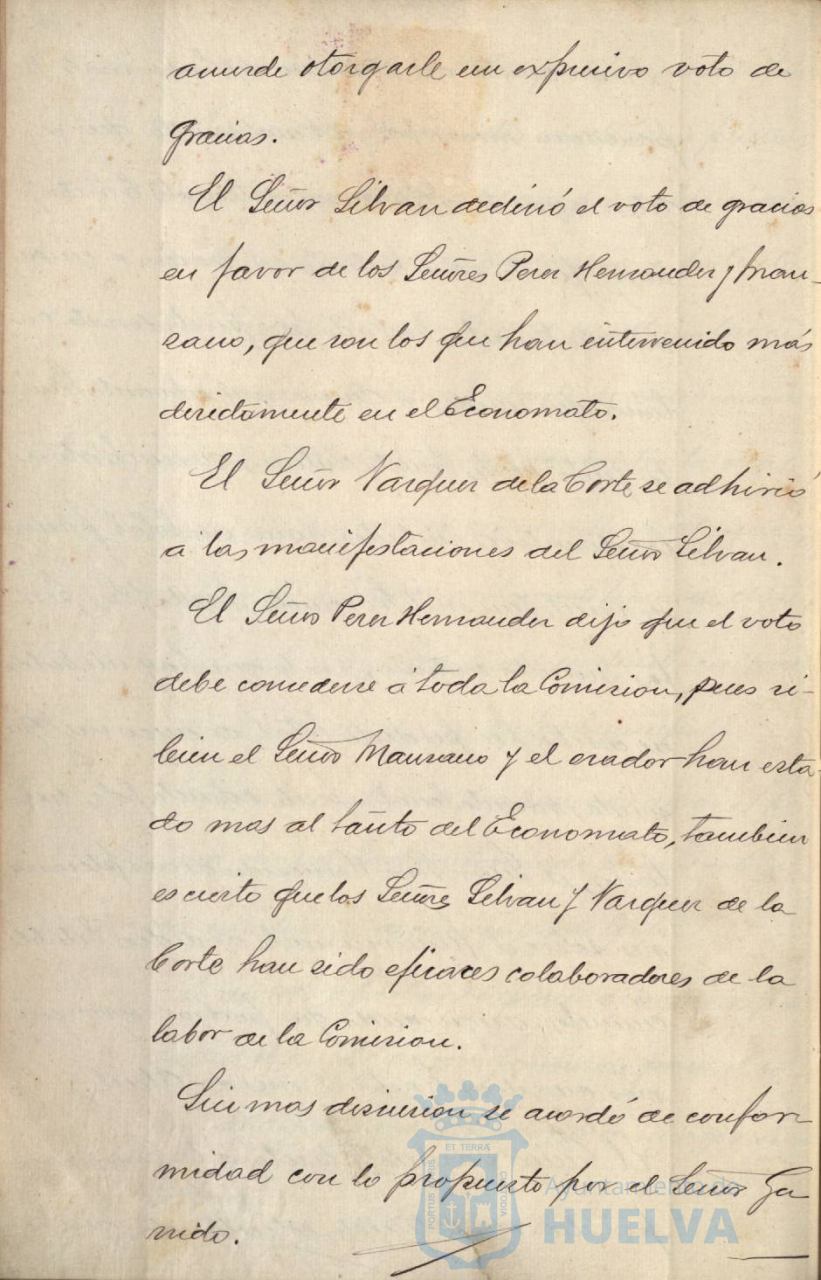 acuerde otorgarle un expresivo voto de
gracias.
El Señor Silvan declinó el voto de gracias
en favor de los Señores Perez Hernandez y Man-
zano, que son los que han intervenido más
directamente en el Economato.
El Señor Vazquez de la Corte se adhirió
á las manifestaciones del Señor Silvan.
El Señor Perez Hernandez dijo que el voto
debe concederse á toda la Comision, pues si-
bien el Señor Manzano y el orador han esta-
do mas al tanto del Economato, tambien
es cierto que los Señores Silvan y Vazquez de la
Corte han sido eficaces colaboradores de la
labor de la Comision.
Sin mas discusion se acordó de confor-
midad con lo propuesto por el Señor Ga
rrido.
ET TERRA
PORTUS MARIS
CUSTODIA
Ayuntamiento de
HUELVA